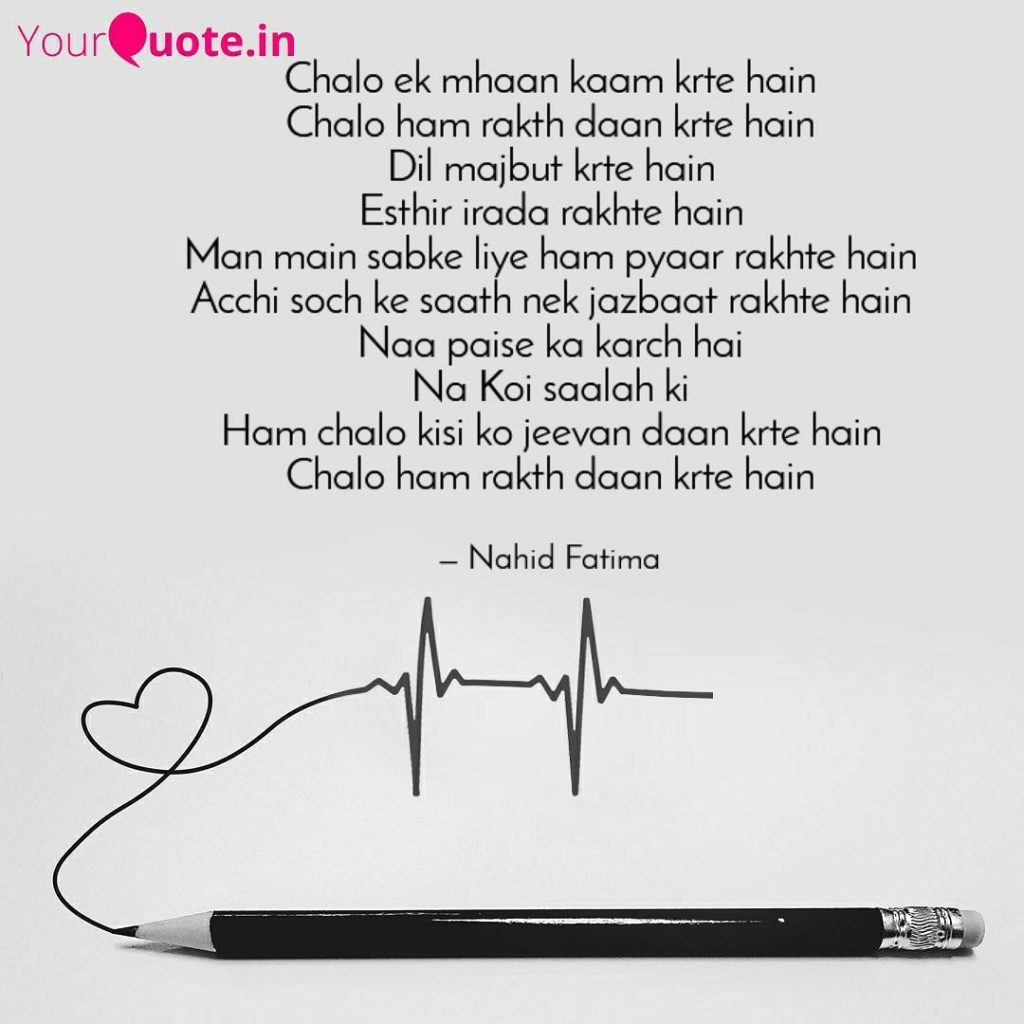 YourQuote.in
Chalo ek mhaan kaam krte hain
Chalo ham rakth daan krte hain
Dil majbut krte hain
Esthir irada rakhte hain
Man main sabke liye ham pyaar rakhte hain
Acchi soch ke saath nek jazbaat rakhte hain
Naa paise ka karch hai
Na Koi saalah ki
Ham chalo kisi ko jeevan daan krte hain
Chalo ham rakth daan krte hain
– Nahid Fatima